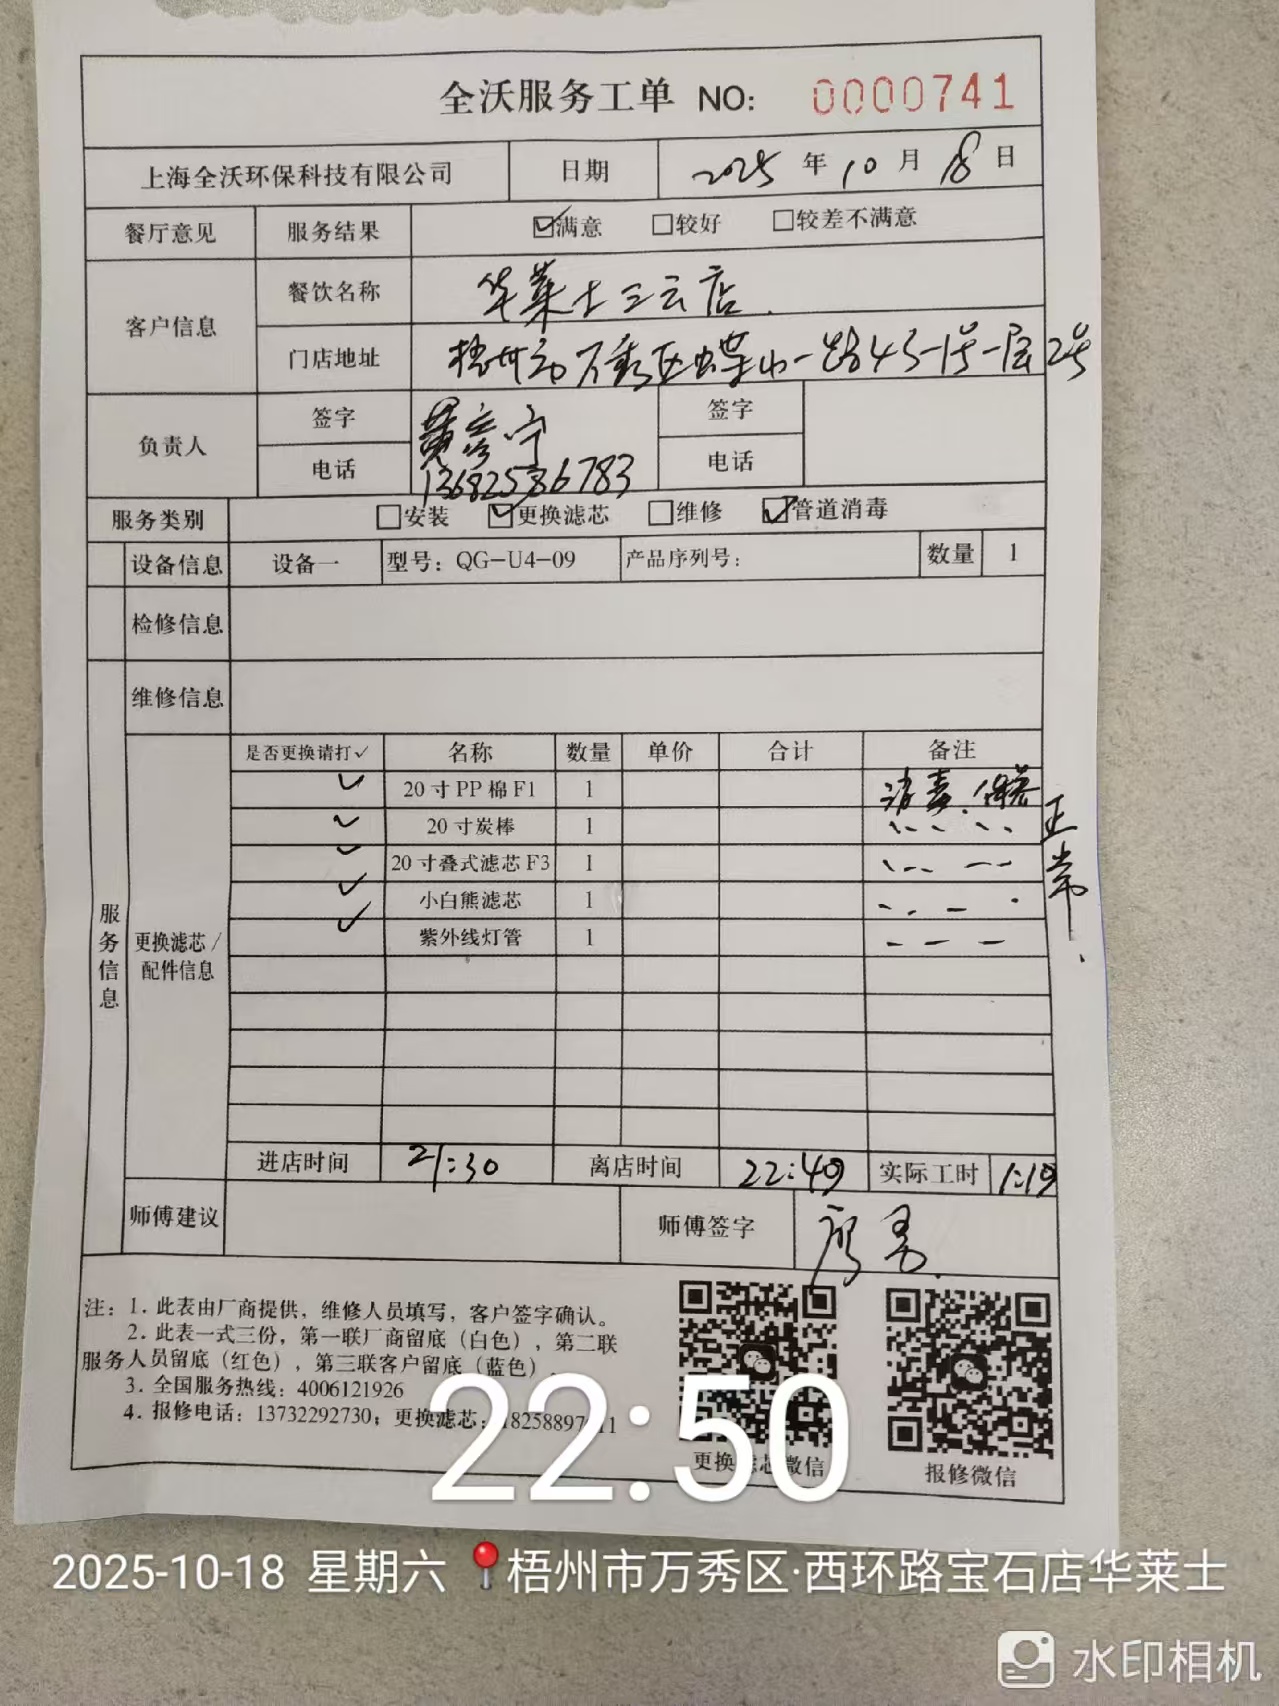 全沃服务工单 NO: 0000741
上海全沃环保科技有限公司 日期 2025 年 10 月 18 日
餐厅意见 服务结果 ☑满意 □较好 □较差不满意
客户信息 餐饮名称 华莱士三云店
门店地址 梧州市万秀区蝶山一路43-1号一层2号
负责人 签字 黄彦宁 签字
电话 13682586783 电话
服务类别 □安装 ☑更换滤芯 □维修 ☑管道消毒
设备信息 设备一 型号：QG-U4-09 产品序列号： 数量 1
检修信息
维修信息
服务信息
更换滤芯/配件信息
是否更换请打✓ 名称 数量 单价 合计 备注
✓ 20寸PP棉F1 1 消毒.保养 正常.
✓ 20寸炭棒 1
✓ 20寸叠式滤芯F3 1
✓ 小白熊滤芯 1
✓ 紫外线灯管 1
进店时间 21:30 离店时间 22:49 实际工时 1:19
师傅建议 师傅签字
注：1. 此表由厂商提供，维修人员填写，客户签字确认。
2. 此表一式三份，第一联厂商留底（白色），第二联
服务人员留底（红色），第三联客户留底（蓝色）.
3. 全国服务热线：4006121926
4. 报修电话：13732292730；更换滤芯：
更换滤芯微信 报修微信
22:50
2025-10-18 星期六 梧州市万秀区·西环路宝石店华莱士
水印相机